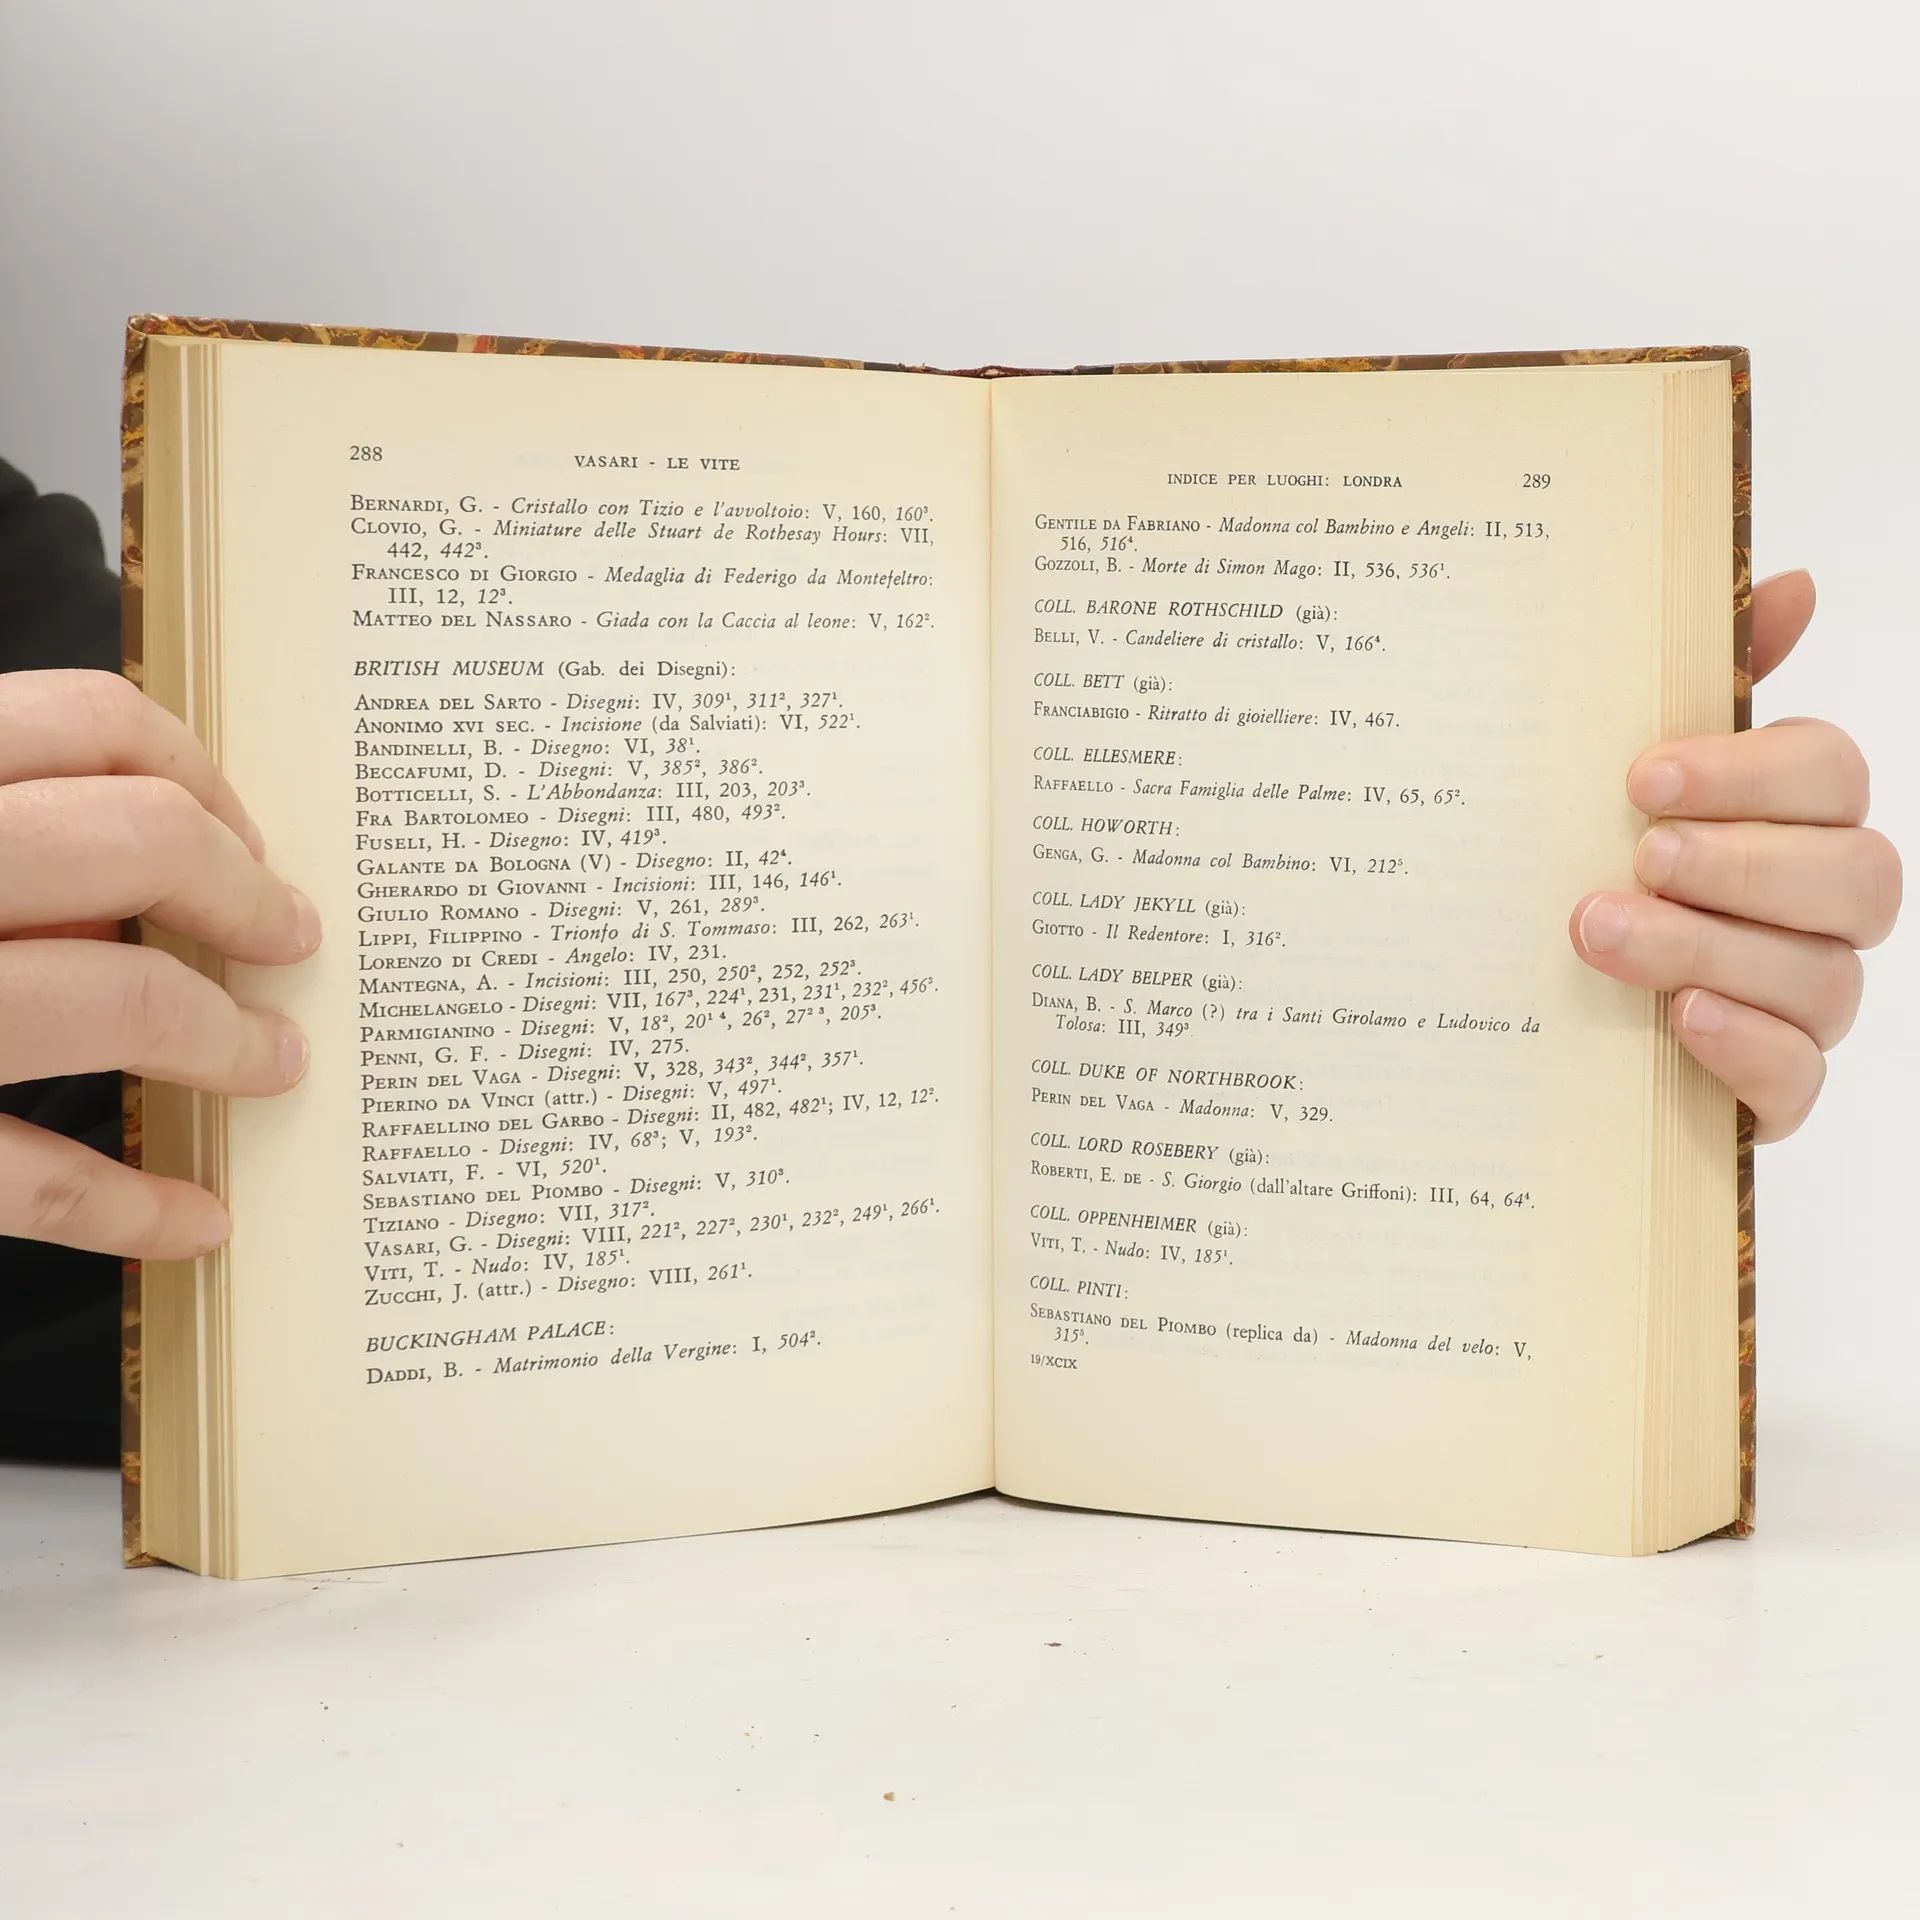 288
VASARI - LE VITE
BERNARDI, G. - Cristallo con Tizio e l'avvoltoio: V, 160, 160³.
CLOVIO, G. - Miniature delle Stuart de Rothesay Hours: VII,
442, 442³.
FRANCESCO DI GIORGIO - Medaglia di Federigo da Montefeltro:
III, 12, 12³.
MATTEO DEL NASSARO - Giada con la Caccia al leone: V, 162².
BRITISH MUSEUM (Gab. dei Disegni):
ANDREA DEL SARTO - Disegni: IV, 309¹, 311², 327¹.
ANONIMO XVI SEC. - Incisione (da Salviati): VI, 522¹.
BANDINELLI, B. - Disegno: VI, 38¹.
BECCAFUMI, D. - Disegni: V, 385², 386².
BOTTICELLI, S. - L'Abbondanza: III, 203, 203³.
FRA BARTOLOMEO - Disegni: III, 480, 493².
FUSELI, H. - Disegno: IV, 419³.
GALANTE DA BOLOGNA (V) - Disegno: II, 42⁴.
GHERARDO DI GIOVANNI - Incisioni: III, 146, 146¹.
GIULIO ROMANO - Disegni: V, 261, 289³.
LIPPI, FILIPPINO - Trionfo di S. Tommaso: III, 262, 263¹.
LORENZO DI CREDI - Angelo: IV, 231.
MANTEGNA, A. - Incisioni: III, 250, 250², 252, 252³.
MICHELANGELO - Disegni: VII, 167³, 224¹, 231, 231¹, 232², 456².
PARMIGIANINO - Disegni: V, 18², 20¹ ⁴, 26², 27² ³, 205³.
PENNI, G. F. - Disegni: IV, 275.
PERIN DEL VAGA - Disegni: V, 328, 343², 344², 357¹.
PIERINO DA VINCI (attr.) - Disegni: V, 497¹.
RAFFAELLINO DEL GARBO - Disegni: II, 482, 482¹; IV, 12, 12².
RAFFAELLO - Disegni: IV, 68³; V, 193².
SALVIATI, F. - VI, 520¹.
SEBASTIANO DEL PIOMBO - Disegni: V, 310³.
TIZIANO - Disegno: VII, 317².
VASARI, G. - Disegni: VIII, 221², 227², 230¹, 232², 249¹, 266¹.
VITI, T. - Nudo: IV, 185¹.
ZUCCHI, J. (attr.) - Disegno: VIII, 261¹.
BUCKINGHAM PALACE:
DADDI, B. - Matrimonio della Vergine: I, 504².
INDICE PER LUOGHI: LONDRA 289
GENTILE DA FABRIANO - Madonna col Bambino e Angeli: II, 513,
516, 516⁴.
GOZZOLI, B. - Morte di Simon Mago: II, 536, 536¹.
COLL. BARONE ROTHSCHILD (già):
BELLI, V. - Candeliere di cristallo: V, 166⁴.
COLL. BETT (già):
FRANCIABIGIO - Ritratto di gioielliere: IV, 467.
COLL. ELLESMERE:
RAFFAELLO - Sacra Famiglia delle Palme: IV, 65, 65².
COLL. HOWORTH:
GENGA, G. - Madonna col Bambino: VI, 212⁵.
COLL. LADY JEKYLL (già):
GIOTTO - Il Redentore: I, 316².
COLL. LADY BELPER (già):
DIANA, B. - S. Marco (?) tra i Santi Girolamo e Ludovico da
Tolosa: III, 349³.
COLL. DUKE OF NORTHBROOK:
PERIN DEL VAGA - Madonna: V, 329.
COLL. LORD ROSEBERY (già):
ROBERTI, E. DE - S. Giorgio (dall'altare Griffoni): III, 64, 64⁴.
COLL. OPPENHEIMER (già):
VITI, T. - Nudo: IV, 185¹.
COLL. PINTI:
SEBASTIANO DEL PIOMBO (replica da) - Madonna del velo: V,
315⁵.
19/XCIX